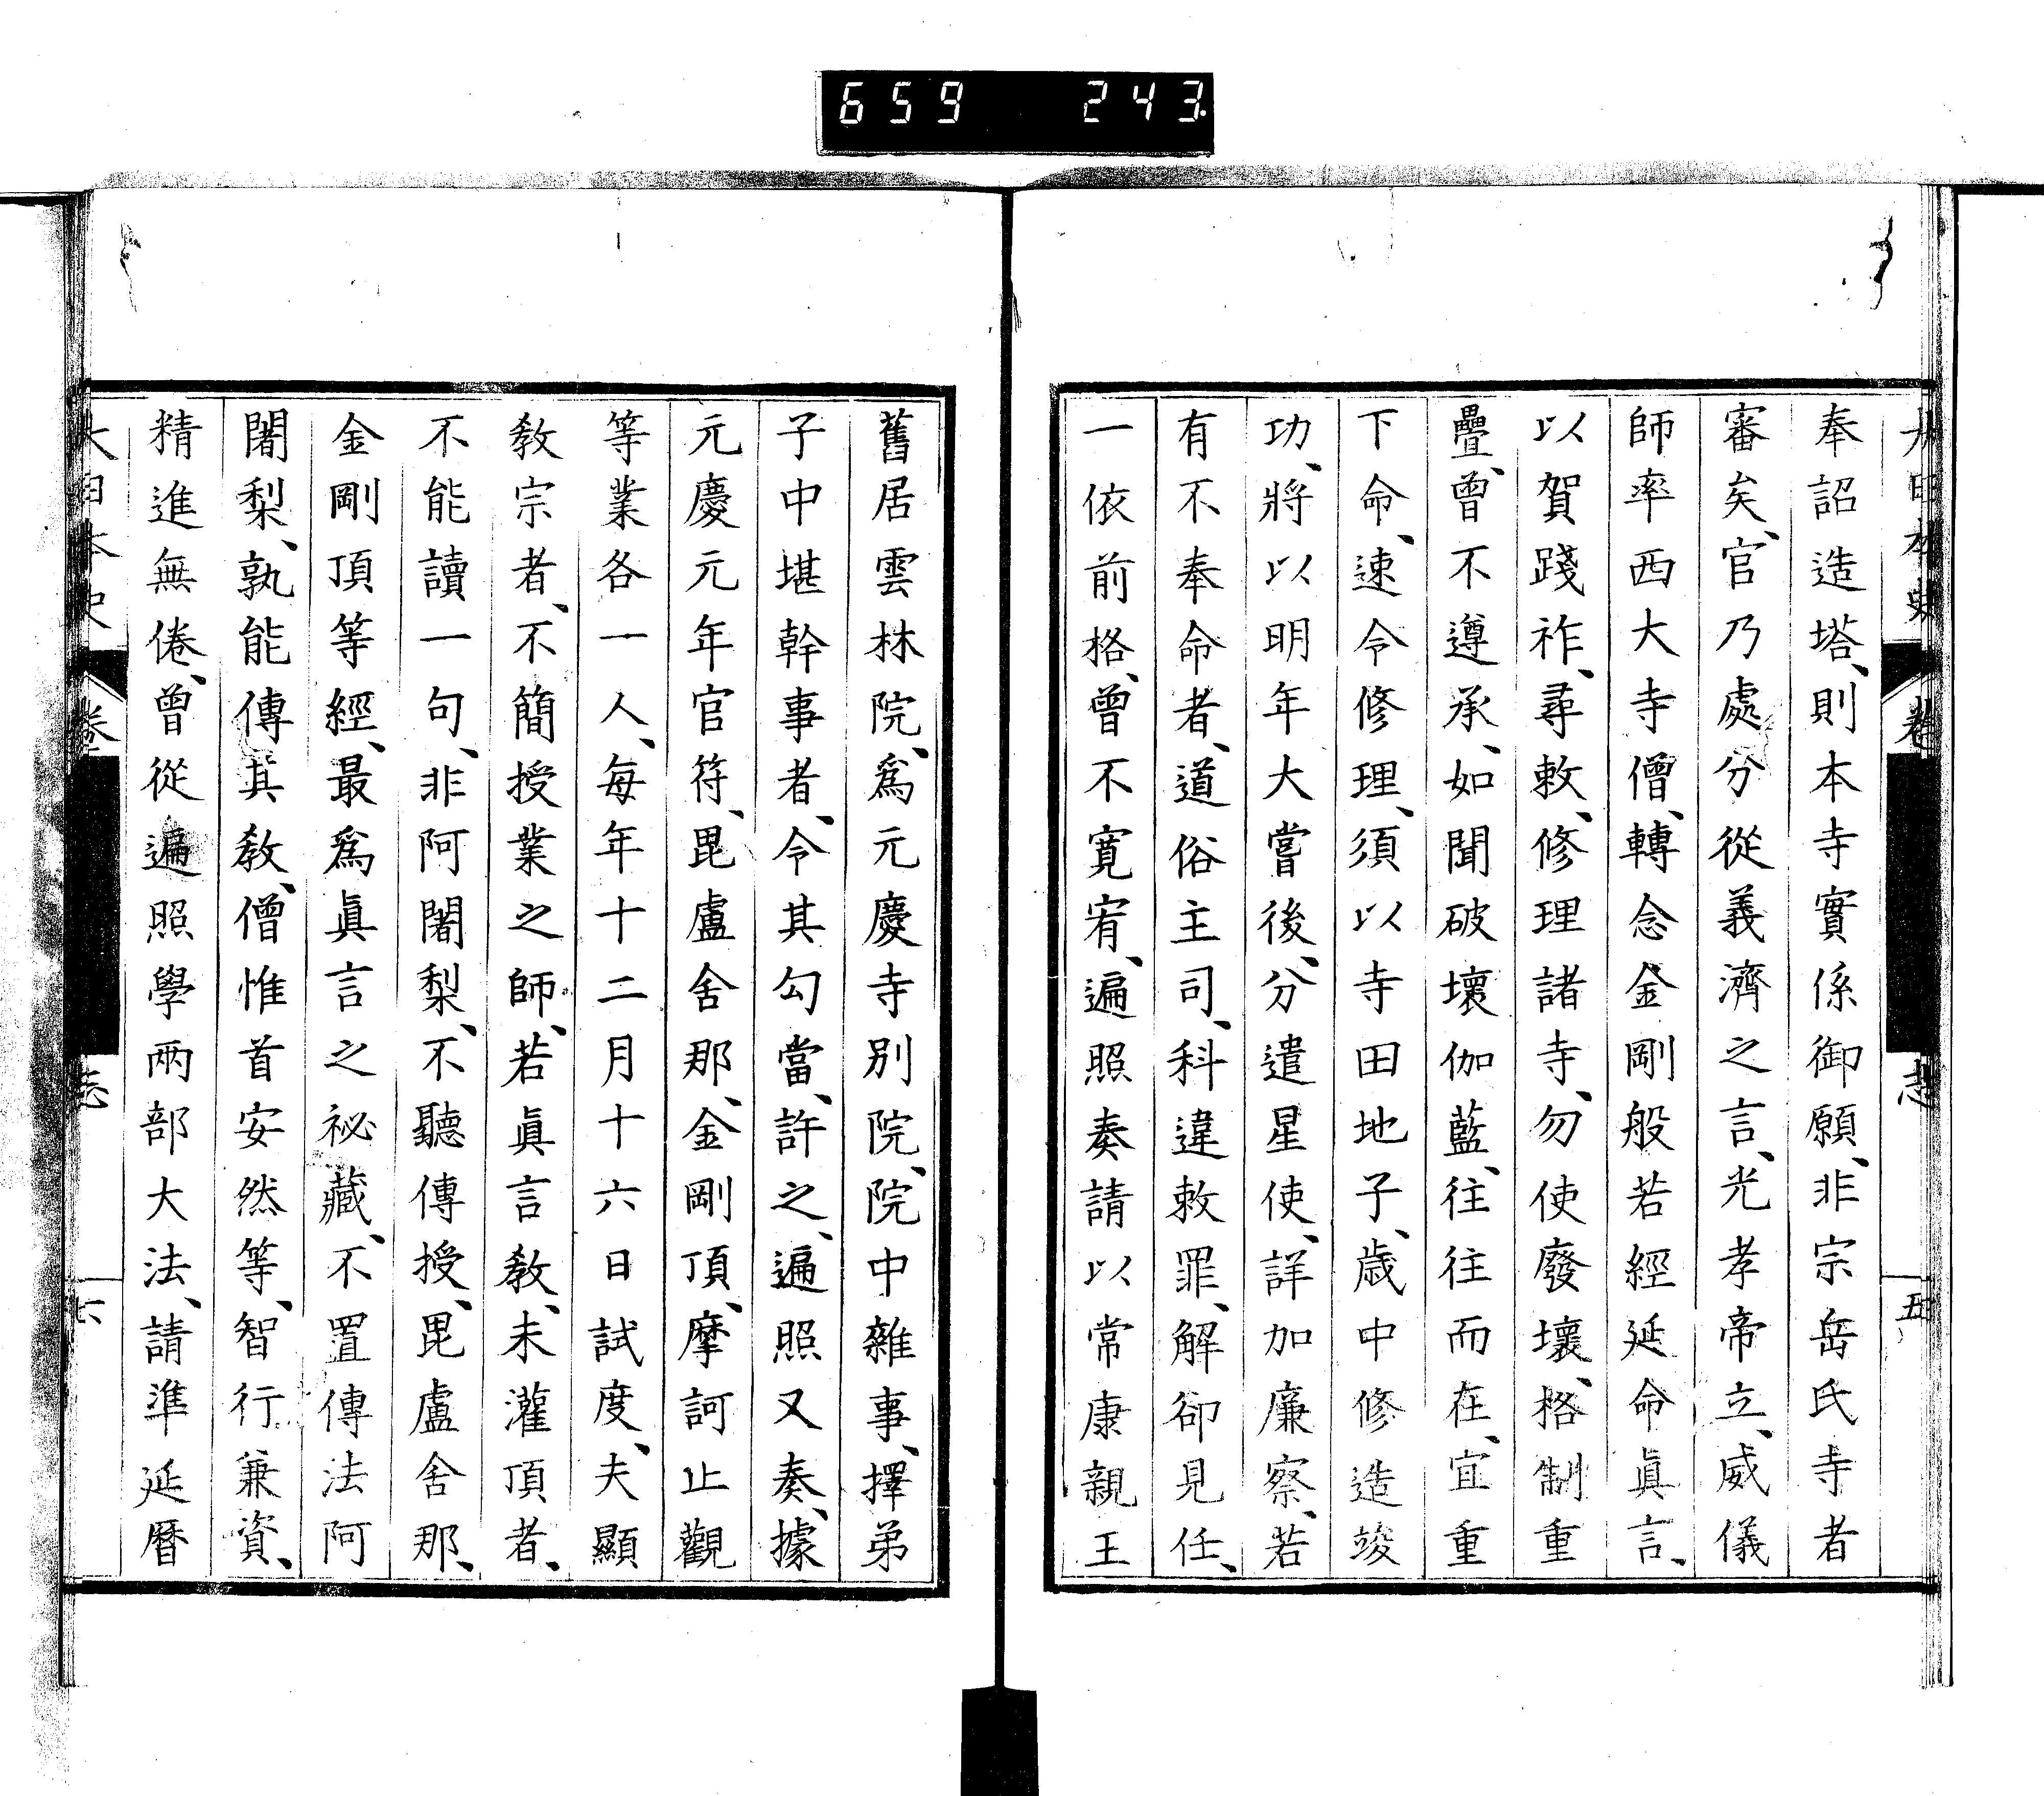 659 243
大日本史 卷 志 五
奉詔造塔、則本寺實係御願、非宗岳氏寺者
審矣、官乃處分從義濟之言、光孝帝立、威儀
師率西大寺僧、轉念金剛般若經延命眞言、
以賀踐祚、尋敕、修理諸寺、勿使廢壞、格制重
疊、曾不遵承、如聞破壞伽藍、往往而在、宜重
下命、速令修理、須以寺田地子、歳中修造竣
功、將以明年大嘗後、分遣星使、詳加廉察、若
有不奉命者、道俗主司、科違敕罪、解卻見任、
一依前格、曾不寛宥、遍照奏請以常康親王
舊居雲林院、爲元慶寺別院、院中雜事、擇弟
子中堪幹事者、令其勾當、許之、遍照又奏、據
元慶元年官符、毘盧舍那、金剛頂、摩訶止觀
等業各一人、毎年十二月十六日試度、夫顯
教宗者、不簡授業之師、若眞言教、未灌頂者、
不能讀一句、非阿闍梨、不聽傳授、毘盧舍那、
金剛頂等經、最爲眞言之祕藏、不置傳法阿
闍梨、孰能傳其教、僧惟首安然等、智行兼資、
精進無倦、曾從遍照學兩部大法、請準延曆
大日本史 卷 志 六